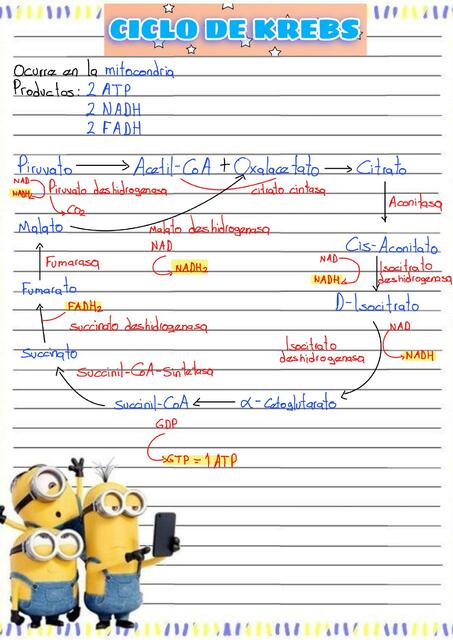 CICLO DE KREBS
Ocurre en la mitocondria
Productos: 2 ATP
2 NADH
2 FADH
Piruvato Acetil-CoA + Oxalacetato Citrato
NAD
NADH₂
Piruvato deshidrogenasa
citrato cintasa
CO₂
Aconitasa
Malato
Malato deshidrogenasa
NAD
NADH₂
Cis-Aconitato
Fumarasa
NAD
NADH₂
Isocitrato
deshidrogenasa
Fumarato
D-Isocitrato
FADH₂
succinato deshidrogenasa
NAD
NADH
Isocitrato
deshidrogenasa
Succinato
Succinil-CoA-Sintetasa
Succinil-CoA α-Cetoglutarato
GDP
GTP = 1 ATP